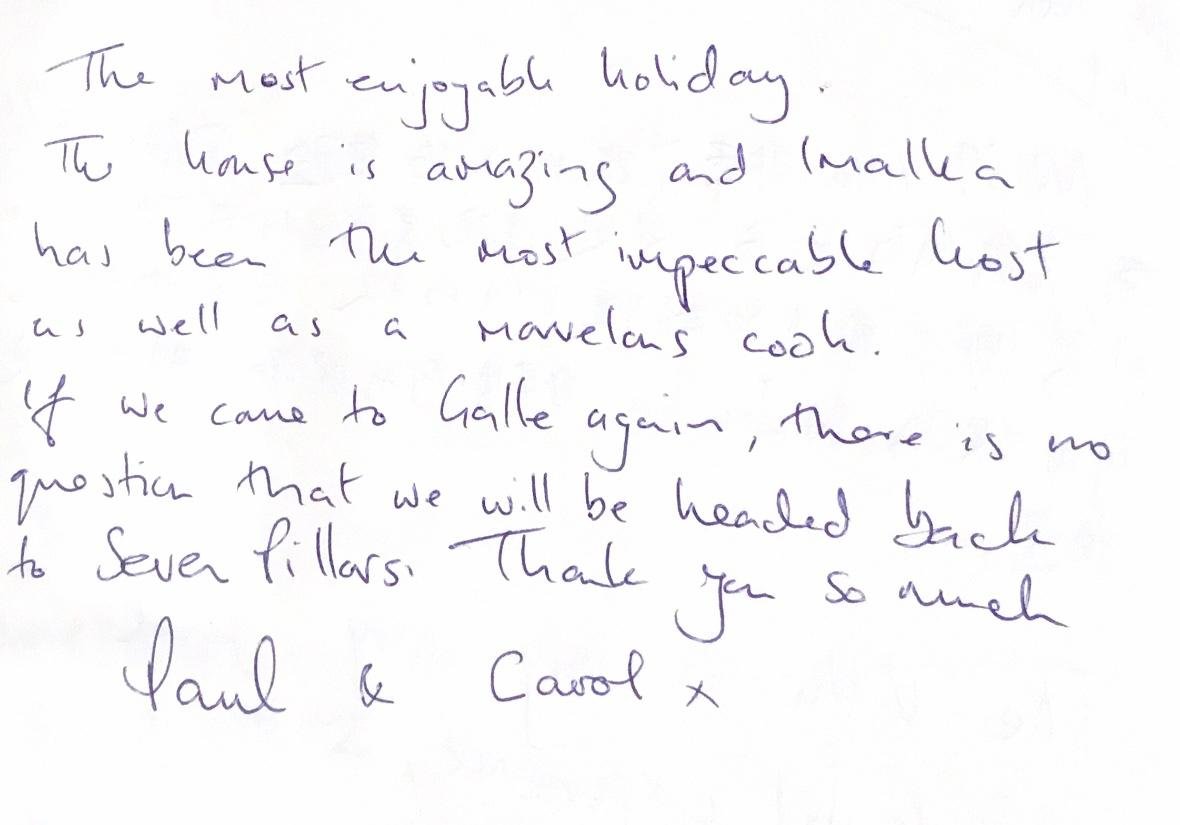 The most enjoyable holiday.
The house is amazing and Imalka
has been the most impeccable host
as well as a marvelous cook.
If we came to Galle again, there is no
question that we will be headed back
to Seven Pillars. Thank you so much
Paul & Carol x